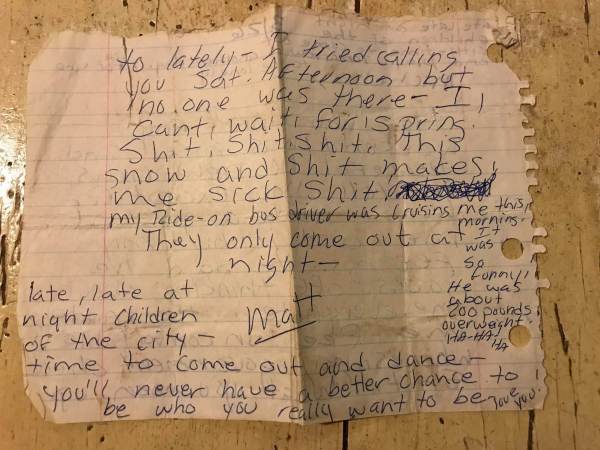 to lately - I tried calling
you Sat. Afternoon but
no one was there - I
cant wait for Spring
Shit, Shit, Shit, This
snow and Shit makes
me sick Shit.
my Ride-on bus driver was Cruising me this
morning.
They only come out at
night -
It
was
so
funny!!
He was
about
200 pounds
overweight.
HA-HA-
HA
late, late at
night Children
of the city -
Matt
time to come out and dance -
you'll never have a better chance to
be who you really want to be
love you!